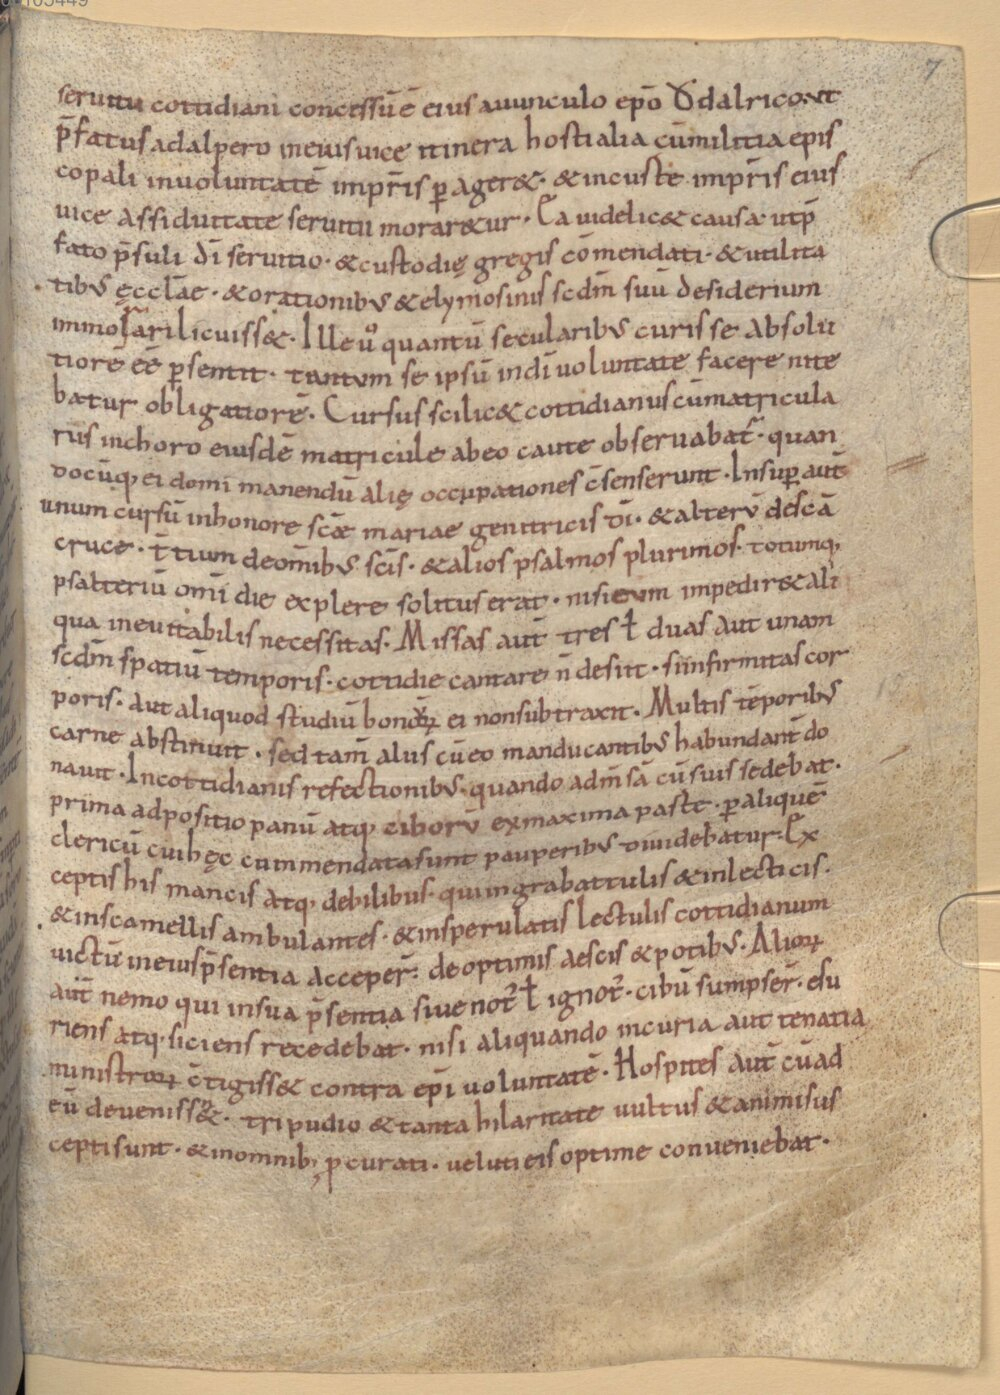 7
seruitu cottidiani concessū ē eius auunculo epō Ǒdalrico. vt
p̄fatus adalpero in eius uice itinera hostialia cū militia epis
copali in uoluntatē impr̄is per ager&. & in custe impr̄is eius
uice assiduitate seruitu morar&ur. Ea uidelic& causa. ut p̄
fato p̄suli dī seruitio. & custodię gregis cōmendati. & utilita
tibus ęccłae. & orationibus & elymosinis scdm̄ suū desiderium
immorari licuiss&. Ille u͛o quantū secularibus curis se absolu
tiorē eē persentit. tantum se ipsū in dī uoluntate facere nite
batur obligatiorē. Cursus scilic& cottidianus cū matricula
riis in choro eiusdē matricule ab eo caute obseruabat͛. quan
docūq; ei domi manendū alię occupationes c̄senserunt. Insuper aut̄
unum cursū in honore scæ mariae genitricis dī. & alterū de scā
cruce. t̄tium de om̄ibus scīs. & alios psalmos plurimos. totumq;
psalteriū omī die explere solitus erat. nisi eum impedir& ali
qua ineuitabilis necessitas. Missas aut̄ tres ł duas aut unam
scdm̄ spatiū temporis. cottidie cantare n̄ desiit. si infirmitas cor
poris. aut aliquod studiū bonoꝝ ei non subtraxit. Multis tēporibus
carne abstinuit. sed tam̄ aliis cū eo manducantibus habundant̄ do
nauit. In cottidianis refectionibus. quando ad m̄sā cū suis sedebat.
prima adpositio panū atq; ciborū ex maxima parte. per aliquē
clericū cui hęc cummendata sunt pauperibus diuidebatur. Ex
ceptis his mancis atq; debilibus. qui in grabattulis & in lecticis.
& in scamellis ambulantes. & in sperulatis lectulis cottidianum
victū in eius p̄sentia acceper̄. de optimis aescis & potibus. Alioꝝ
aut̄ nemo qui in sua p̄sentia siue not͛ ł ignot͛. cibū sumpser̄. esu
riens atq; siciens recedebat. nisi aliquando incuria aut tenatia
ministroꝝ c̄tigiss& contra epī uoluntatē. Hospites aut̄ cū ad
eū deueniss&. tripudio & tanta hilaritate uultus & animi sus
cepti sunt. & in omnib; p̱curati. veluti eis optime conueniebat.